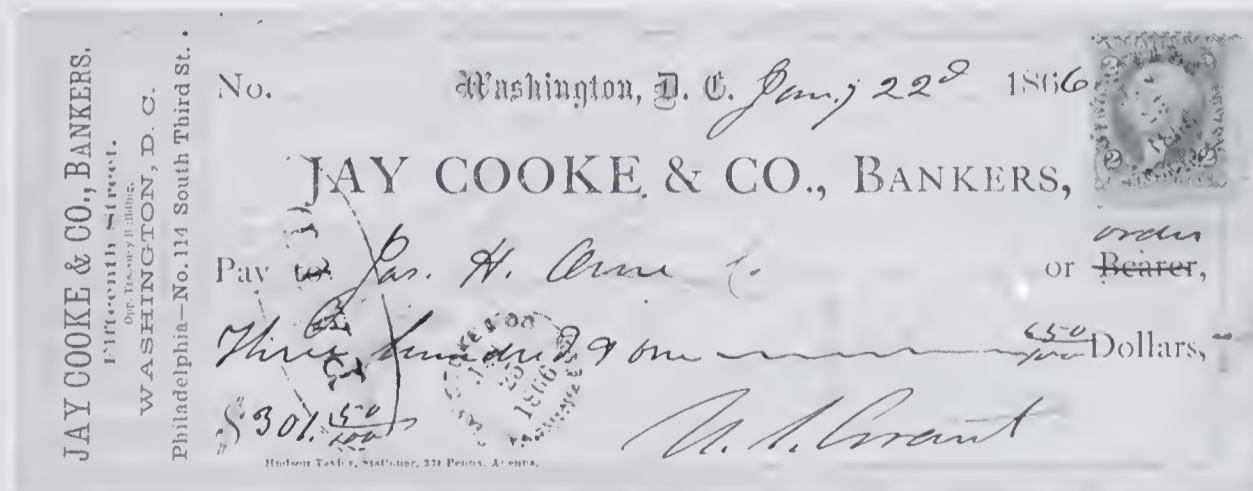 JAY COOKE & CO., BANKERS.
Fifteenth Street.
Opp. Treasury Building.
WASHINGTON, D. C.
Philadelphia—No. 114 South Third St.
No. Washington, D. C. Jany 22d 1866
2 2
JAY COOKE & CO., BANKERS,
order
Pay to Jas. H. or Bearer,
Three hundred & one 50/100 Dollars,
$301.50/100 U. S. Grant
1866
Hudson Taylor, Stationer, 334 Penna. Avenue.